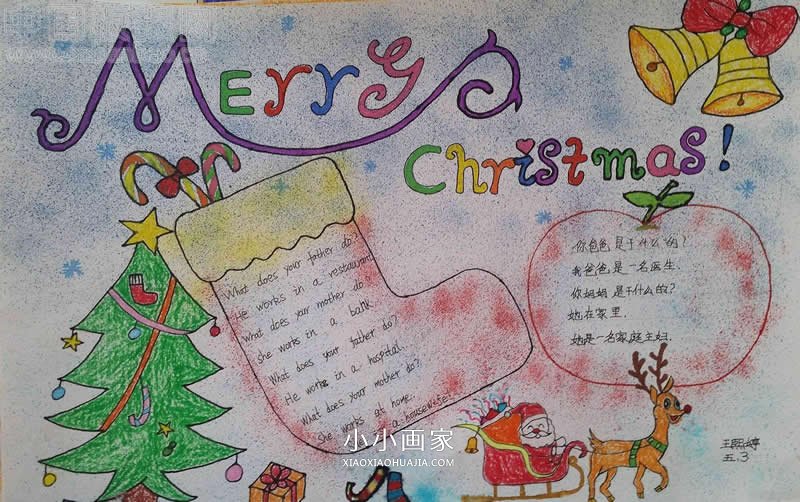 Merry
Christmas!
What does your father do?
He works in a restaurant
What does your mother do
she works in a bank
What does your father do?
He works in a hospital.
What does your mother do?
She works at home.
a housewife.
你爸爸是干什么的?
我爸爸是一名医生.
你妈妈是干什么的?
她在家里.
她是一名家庭主妇.
小小画家
XIAOXIAOHUAJIA.COM
五.3